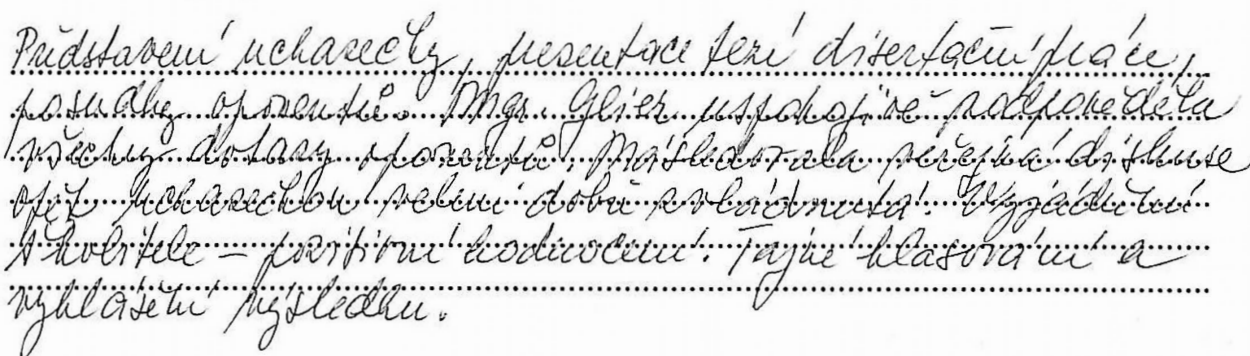 Představení uchazečky, presentace tezí disertační práce,
posudky oponentů. Mgr. Glier uspokojivě zodpověděla
všechny dotazy oponentů. Následovala veřejná diskuse
opět uchazečkou velmi dobře zvládnutá. Vyjádření
školitele – pozitivní hodnocení. Tajné hlasování a
vyhlášení výsledku.